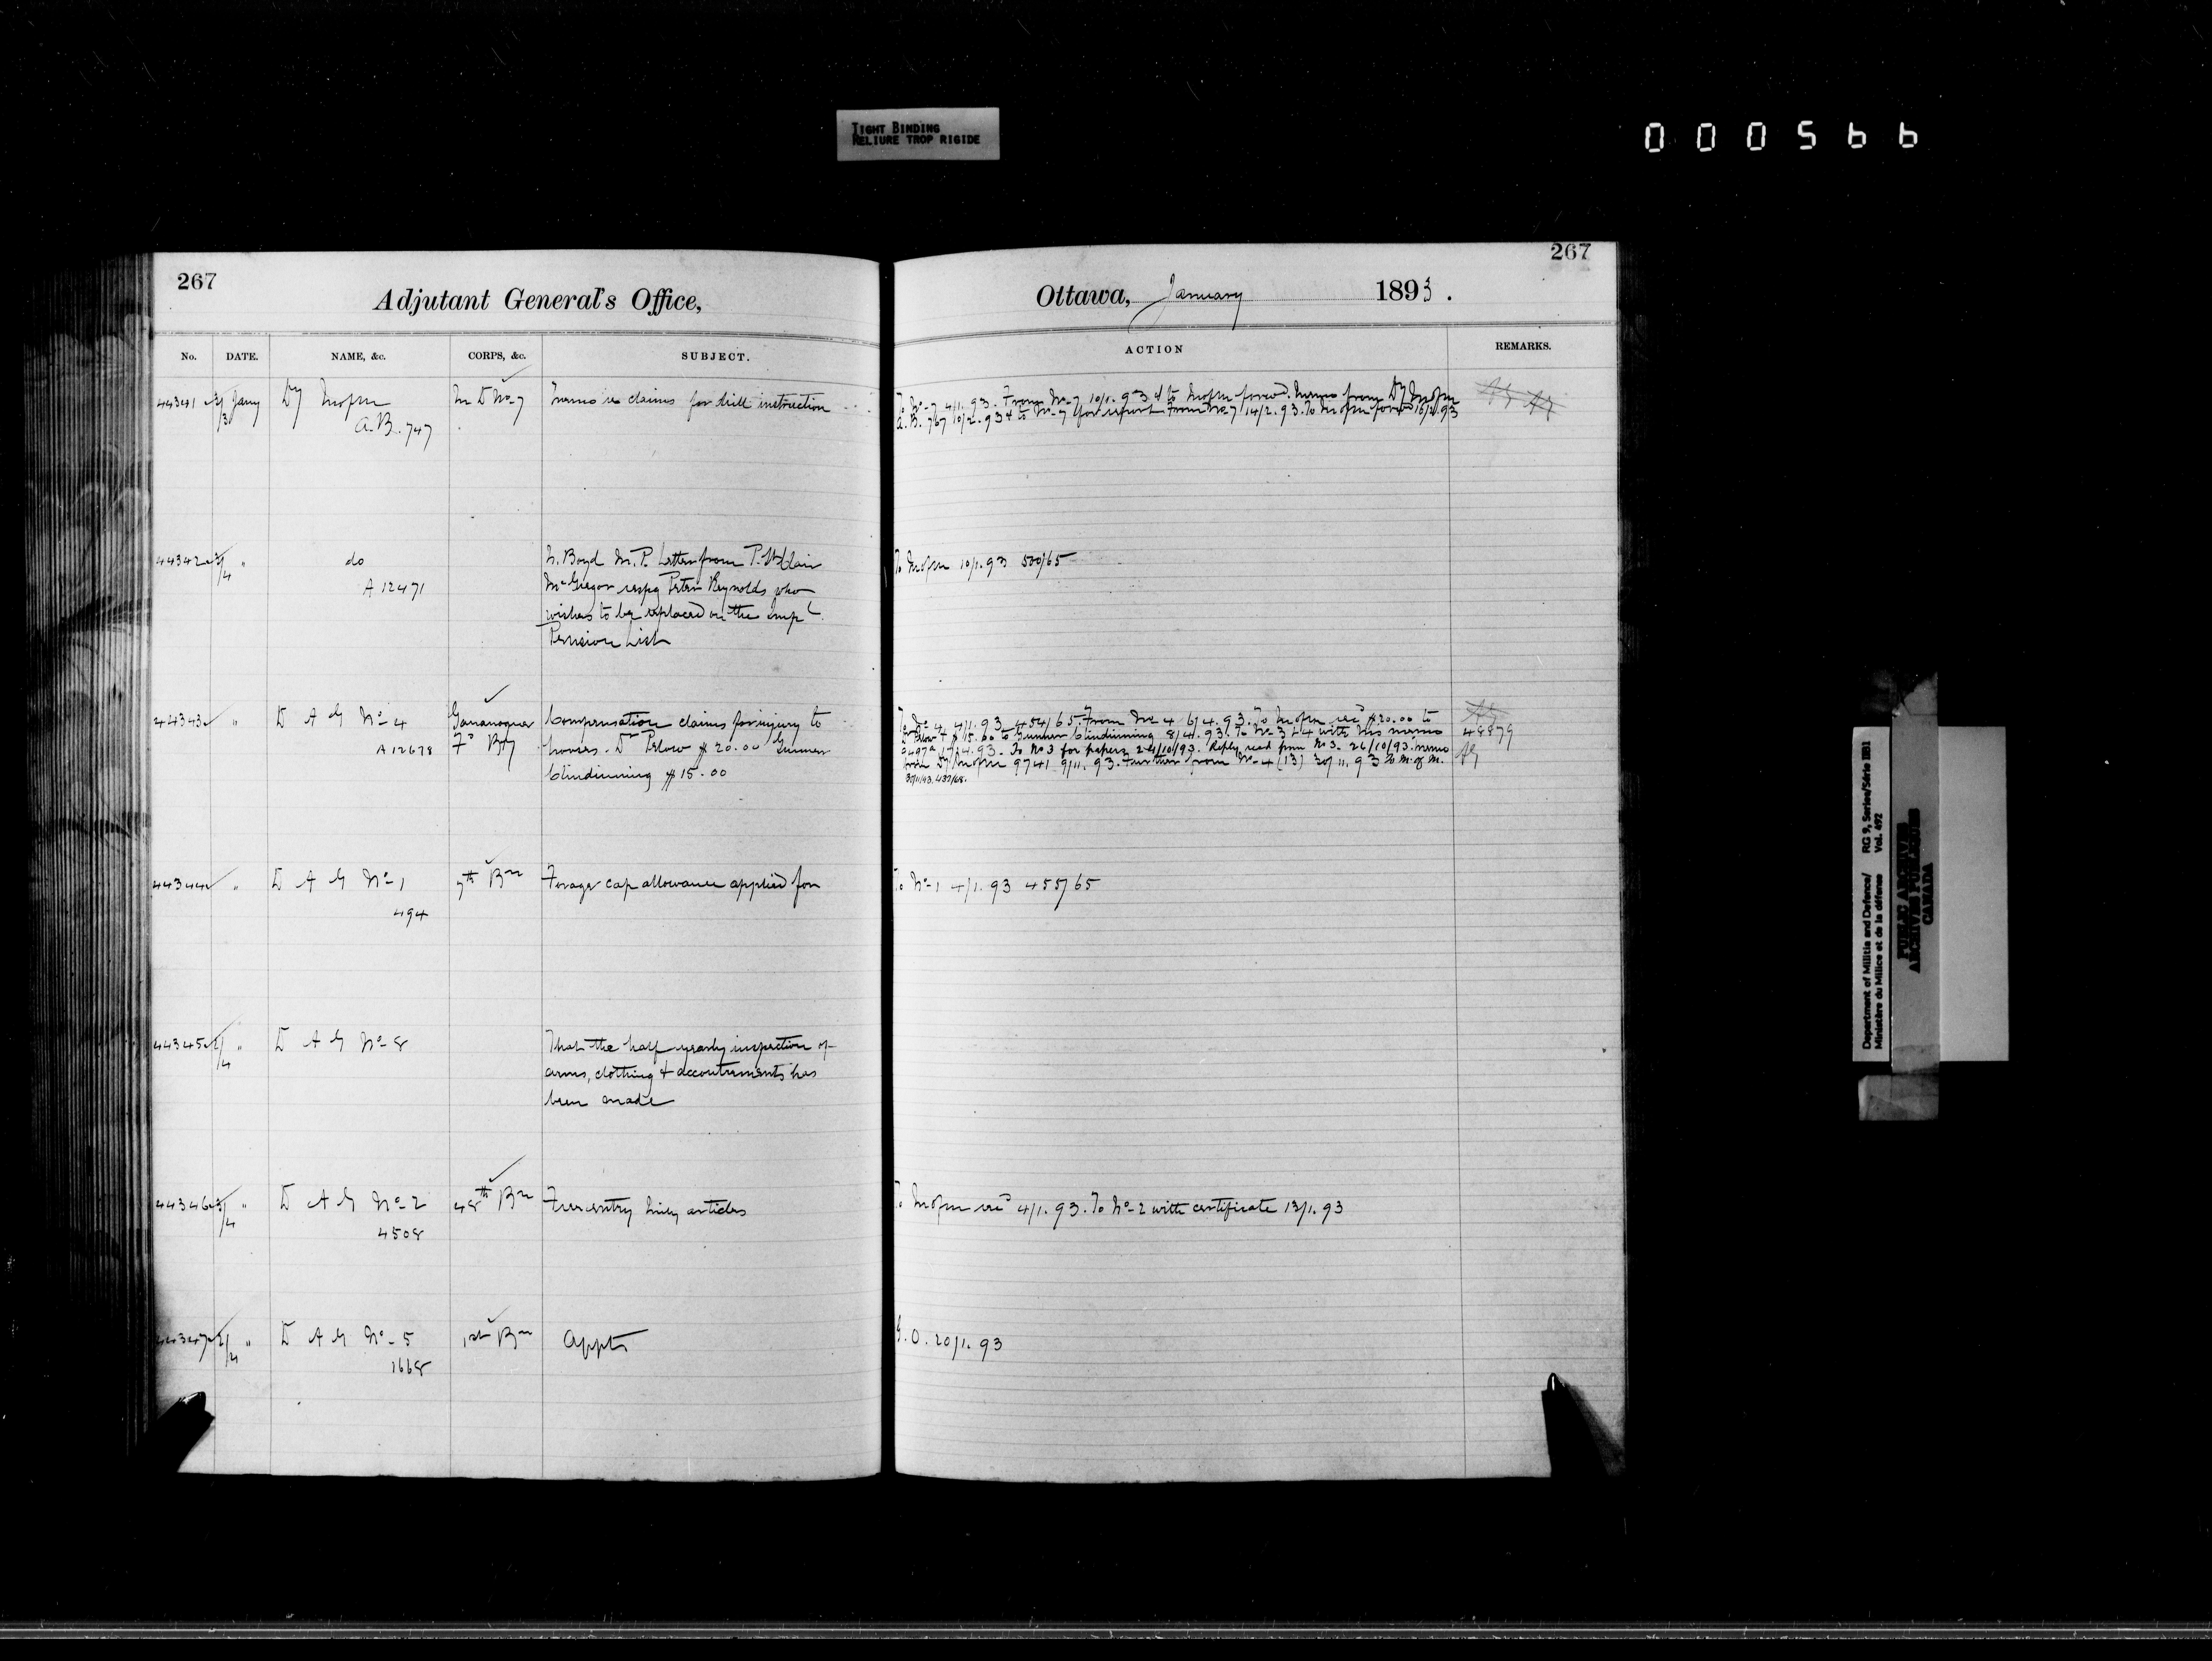 TIGHT BINDING
RELIURE TROP RIGIDE
000566
267
Adjutant General's Office,
No. DATE. NAME, &c. CORPS, &c. SUBJECT.
44341 Jany Dy M of M M D No 7 Memo re claims for drill instruction
A.B. 747
44342 4 " do L. Boyd M.P. Letter from P. StClair
A 12471 McGregor respg Peter Reynolds who
wishes to be replaced on the Impl
Pension List
44343 " D A G No 4 Gananoque Compensation claims for injury to
A12678 Fd Bty horses. Dr $20.00 Gunner
$15.00
44344 " D A G No 1 7th Bn Forage cap allowance applied for
494
44345 4 " D A G No 8 That the half yearly inspection of
arms, clothing & accoutrements has
been made
44346 4 " D A G No 2 48th Bn Free entry articles
4508
44347 " D A G No 5 1st Bn Appts
1668
267
Ottawa, January 1893.
ACTION REMARKS.
To No 7 4/1.93. From No 7 10/1.93 & to forwd. Memo from Dy
A.B. 767 10/2.93 & to No 7 for report From No 7 14/2.93. To forwd
To 10/1.93 500/65
To No 4 4/1.93 454/65. From No 4 6/4.93. To $20.00 to
$15.00 to Gunner 8/4.93. To No 3 with his memo 48879
To No 3 for papers 24/10/93. Reply recd from No 3. 26/10/93. memo
from Dy 9741 9/11.93. Further from No 4 (13) 30/11.93 To M. of M.
To No 1 4/1.93 455/65
To 4/1.93. To No 2 with certificate 13/1.93
G.O. 20/1.93
Department of Militia and Defence/ RG 9, Series/Série IIB1
Ministère du Milice et de la défense Vol. 492
PUBLIC ARCHIVES
ARCHIVES PUBLIQUES
CANADA